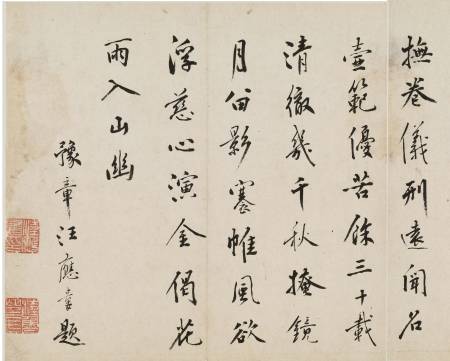 撫卷儀刑遠聞名
壼範優苦餘三十載
清徹幾千秋掩鏡
月留影褰帷風欲
浮慈心演金偈花
雨入山幽
豫章汪應題